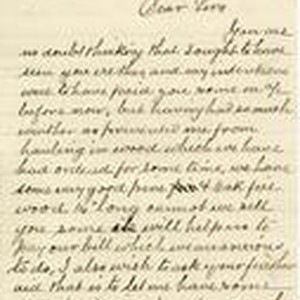 Dear Sirs
You are
no doubt thinking that I ought to have
seen you ere this and my intentions
were to have paid you some on %
before now, but having had so much
weather as prevented me from
hauling in wood which we have
had ordered for some time, we have
some very good pine & oak
wood 4 ft long cannot we sell
you some will help us to
pay our bill which we are anxious
to do, I also wish to ask your further
and that is to let me have some